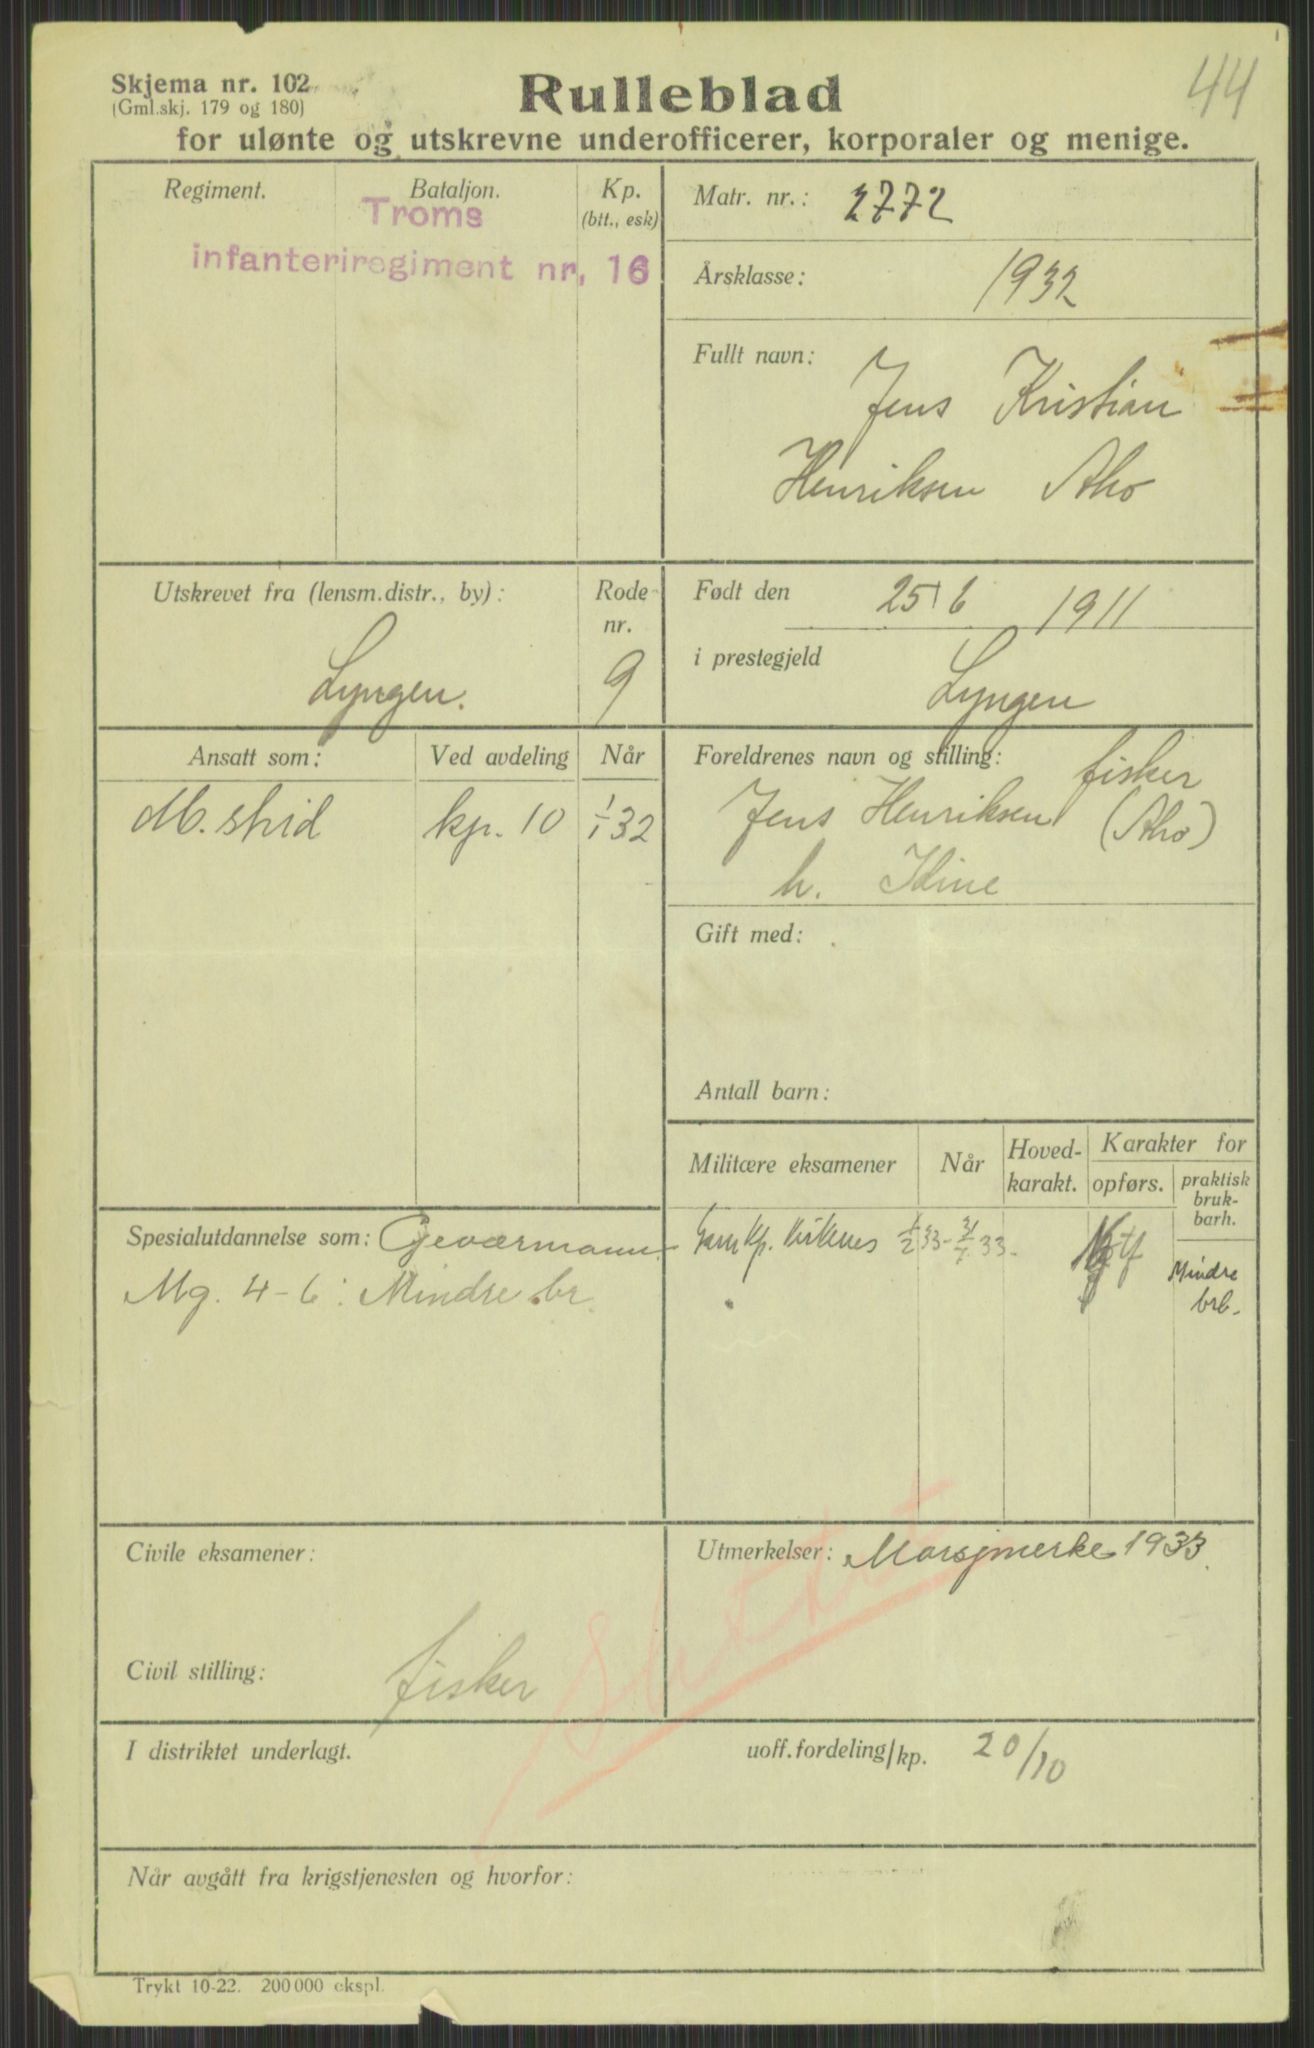 44
Skjema nr. 102
(Gml.skj. 179 og 180)
Rulleblad
for ulønte og utskrevne underofficerer, korporaler og menige.
Regiment. Bataljon. Kp.
(btt., esk)
Troms
infanteriregiment nr. 16
Matr. nr.: 2772
Årsklasse: 1932
Fullt navn: Jens Kristian
Henriksen Aho
Utskrevet fra (lensm.distr., by): Rode
nr.
Lyngen. 9
Født den 25/6 1911
i prestegjeld Lyngen
Ansatt som: Ved avdeling Når
M. strid kp. 10 1/1 32
Foreldrenes navn og stilling: fisker
Jens Henriksen (Aho)
h. Idine
Gift med:
Antall barn:
Militære eksamener Når Hoved-
karakt. Karakter for
opførs. praktisk
bruk-
barh.
Garn Kp. Kirknes 1/2 33 - 31/7 33 - Mtf Mindre
brb.
Spesialutdannelse som: Geværmann
Mg. 4-6: Mindre br.
Civile eksamener:
Civil stilling: fisker
Utmerkelser: Marsjmerke 1933.
Slettet
I distriktet underlagt. uoff.fordeling/kp. 20/10
Når avgått fra krigstjenesten og hvorfor:
Trykt 10-22. 200 000 ekspl.